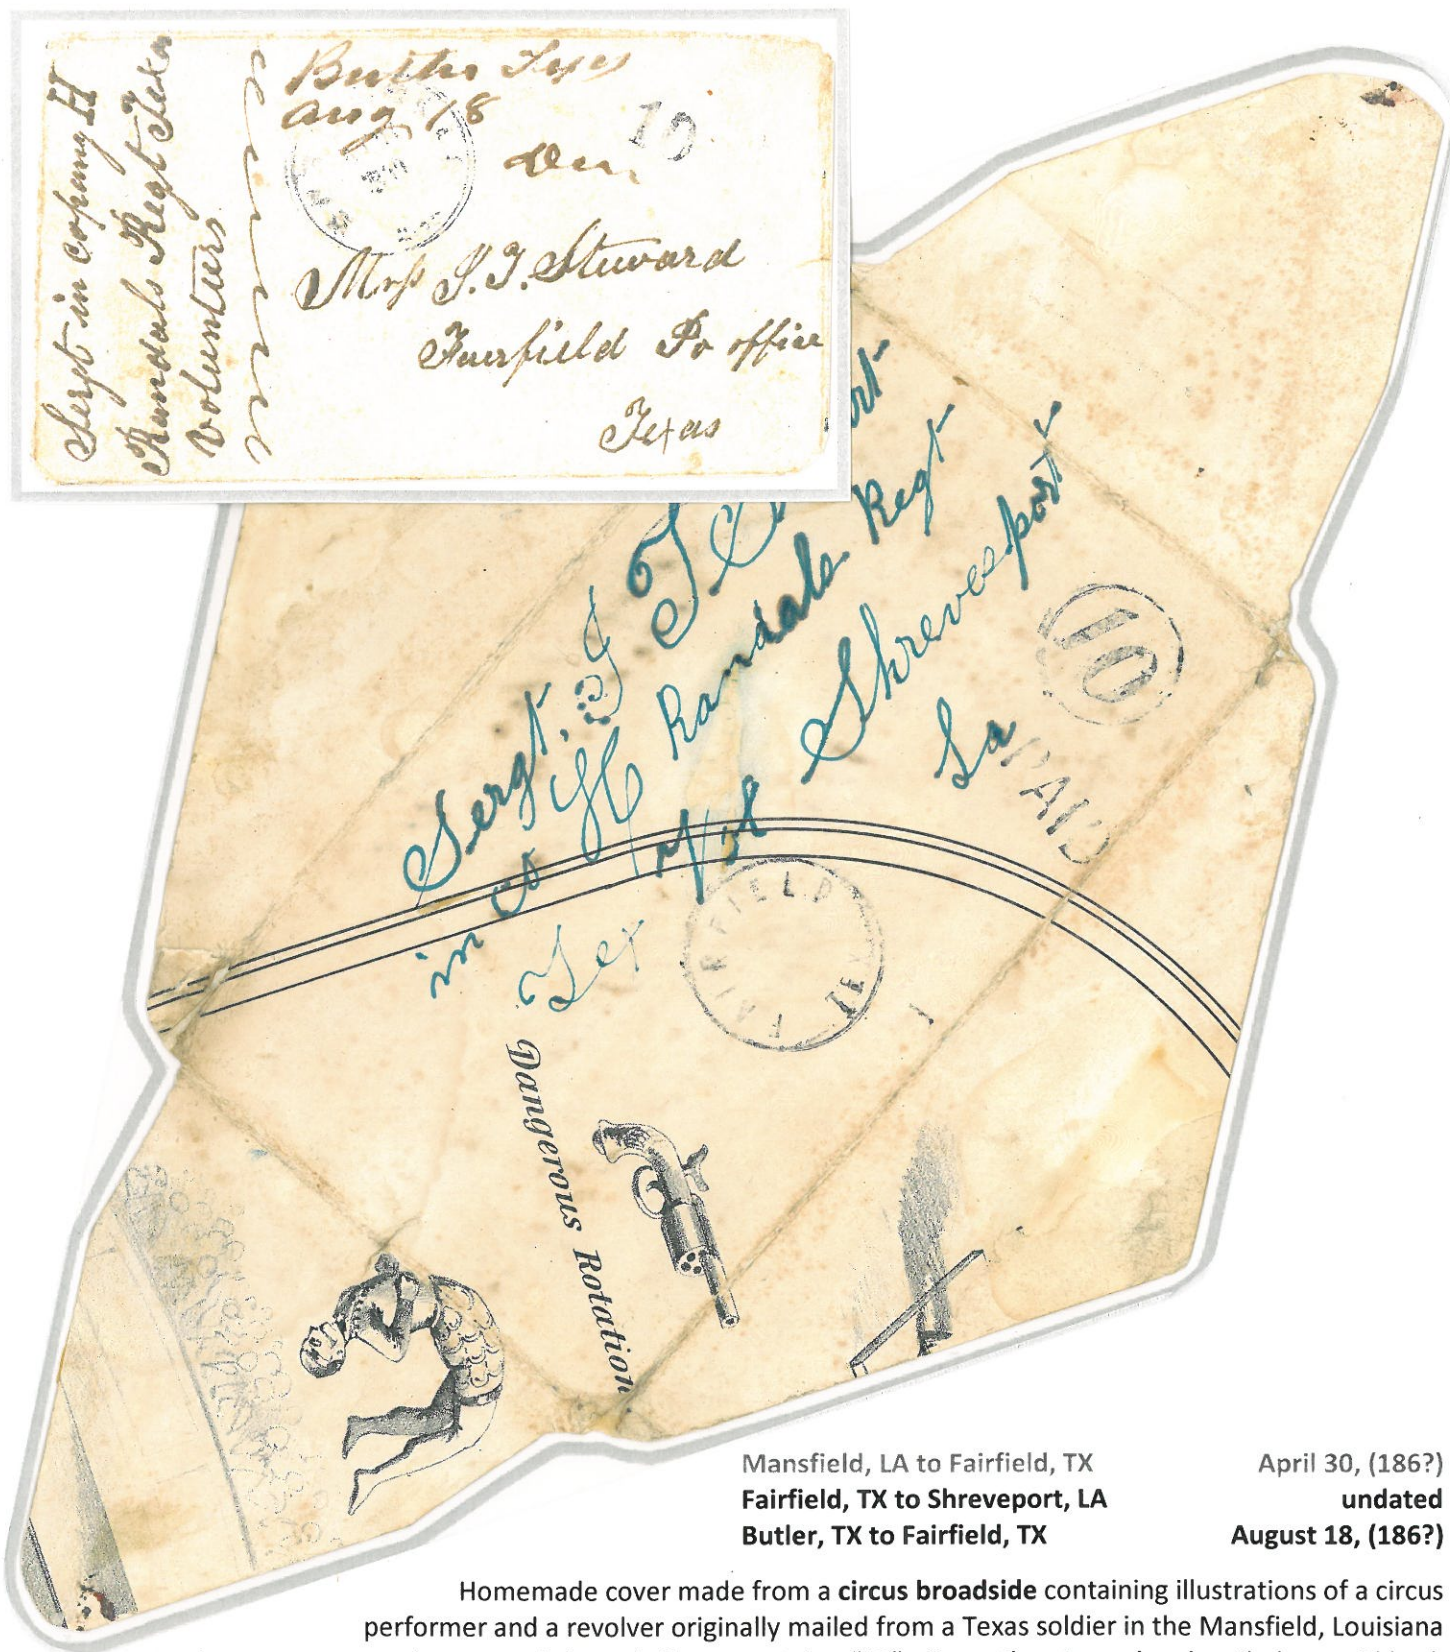 Sergt in copany H
Randals Regt Texas
Volunteers
Butler Texas
Aug 18
10
Due
Mrs S. T. Steward
Fairfield Po office
Texas
Sergt. S T
in co H Randals Regt
Tex Vol Shreveesport
La
10
PAID
FAIRFIELD TEX
Dangerous Rotation
Mansfield, LA to Fairfield, TX April 30, (186?)
Fairfield, TX to Shreveport, LA undated
Butler, TX to Fairfield, TX August 18, (186?)
Homemade cover made from a circus broadside containing illustrations of a circus
performer and a revolver originally mailed from a Texas soldier in the Mansfield, Louisiana